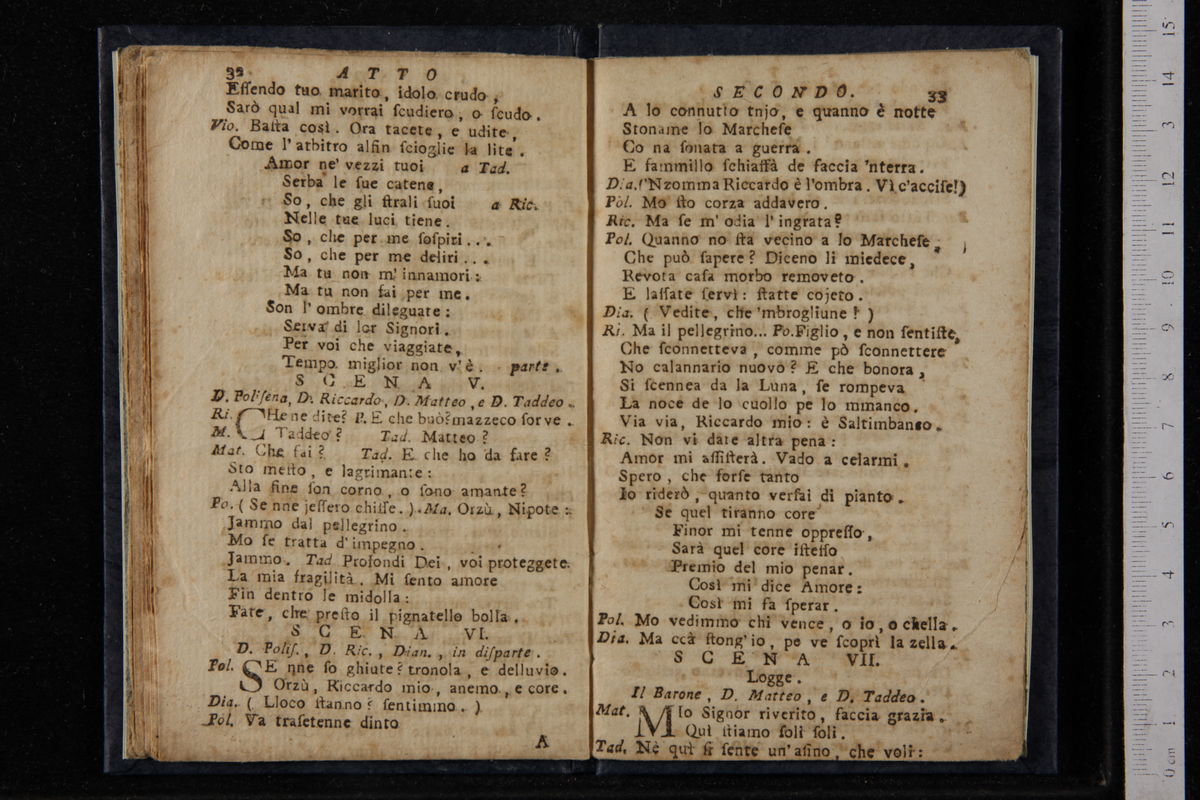 32 ATTO
Eſſendo tuo marito, idolo crudo,
Sarò qual mi vorrai ſcudiero, o ſcudo.
Vio. Baſta così. Ora tacete, e udite,
Come l'atbitro alfin ſcioglie la lite.
Amor ne' vezzi tuoi a Tad.
Serba le ſue catene,
So, che gli ſtrali ſuoi a Ric.
Nelle tue luci tiene.
So, che per me ſoſpiri...
So, che per me deliri...
Ma tu non m'innamori:
Ma tu non fai per me.
Son l'ombre dileguate:
Serva di lor Signori.
Per voi che viaggiate,
Tempo miglior non v'è. parte.
SCENA V.
D. Poliſena, D. Riccardo, D. Matteo, e D. Taddeo.
Ri. CHe ne dite? P. E che buò? mazzeco ſorve.
M. Taddeo? Tad. Matteo?
Mat. Che fai? Tad. E che ho da fare?
Sto meſto, e lagrimante:
Alla fine ſon corno, o ſono amante?
Po. (Se nne jeſſero chiſſe.) Ma. Orzù, Nipote:
Jammo dal pellegrino.
Mo ſe tratta d'impegno.
Jammo. Tad Profondi Dei, voi proteggete
La mia fragilità. Mi ſento amore
Fin dentro le midolla:
Fate, che preſto il pignatello bolla.
SCENA VI.
D. Poliſ., D. Ric., Dian., in diſparte.
Pol. SE nne ſo ghiute? tronola, e delluvio.
Orzù, Riccardo mio, anemo, e core.
Dia. (Lloco ſtanno? ſentimmo.)
Pol. Va traſetenne dinto
A
SECONDO. 33
A lo connutto tnjo, e quanno è notte
Stoname lo Marcheſe
Co na ſonata a guerra.
E fammillo ſchiaffà de faccia 'nterra.
Dia. ('Nzomma Riccardo è l'ombra. Vì c'acciſe!)
Pol. Mo ſto corza addavero.
Ric. Ma ſe m'odia l'ingrata?
Pol. Quanno no ſta vecino a lo Marcheſe,
Che può ſapere? Diceno li miedece,
Revota caſa morbo removeto.
E laſſate ſervì: ſtatte cojeto.
Dia. (Vedite, che 'mbrogliune!)
Ri. Ma il pellegrino... Po. Figlio, e non ſentiſte,
Che ſconnetteva, comme pò ſconnettere
No calannario nuovo? E che bonora,
Si ſcennea da la Luna, ſe rompeva
La noce de lo cuollo pe lo mmanco.
Via via, Riccardo mio: è Saltimbanco.
Ric. Non vi date altra pena:
Amor mi aſſiſterà. Vado a celarmi.
Spero, che forſe tanto
Io riderò, quanto verſai di pianto.
Se quel tiranno core
Finor mi tenne oppreſſo,
Sarà quel core iſteſſo
Premio del mio penar.
Così mi dice Amore:
Così mi fa ſperar.
Pol. Mo vedimmo chi vence, o io, o chella.
Dia. Ma ccà ſtong'io, pe ve ſcoprì la zella.
SCENA VII.
Logge.
Il Barone, D. Matteo, e D. Taddeo.
Mat. MIo Signor riverito, faccia grazia.
Quì ſtiamo ſoli ſoli.
Tad. Nè quì ſi ſente un'aſino, che voli: